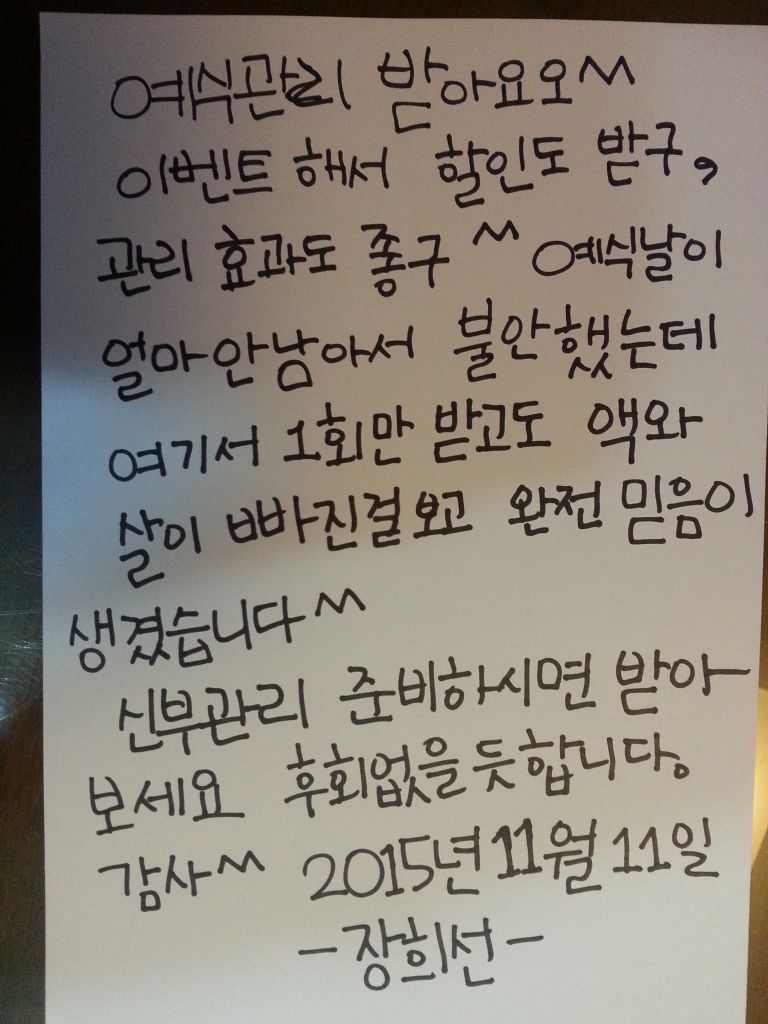 예식관리 받아요오^^
이벤트 해서 할인도 받구,
관리 효과도 좋구 ^^ 예식날이
얼마안남아서 불안했는데
여기서 1회만 받고도 액와
살이 빠진걸보고 완전 믿음이
생겼습니다^^
신부관리 준비하시면 받아
보세요 후회없을듯합니다.
감사^^ 2015년 11월 11일
-장희선-